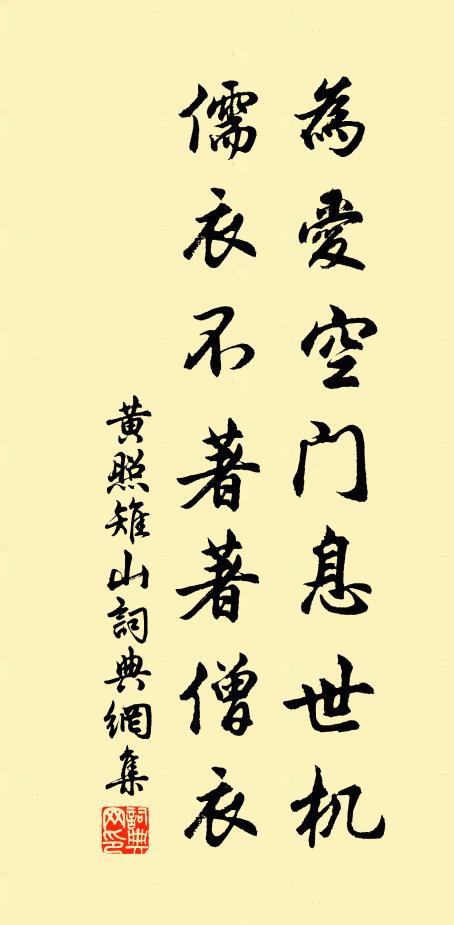 為愛空門息世机
儒衣不著著僧衣
黃照雉山詞典網集
詞典網印